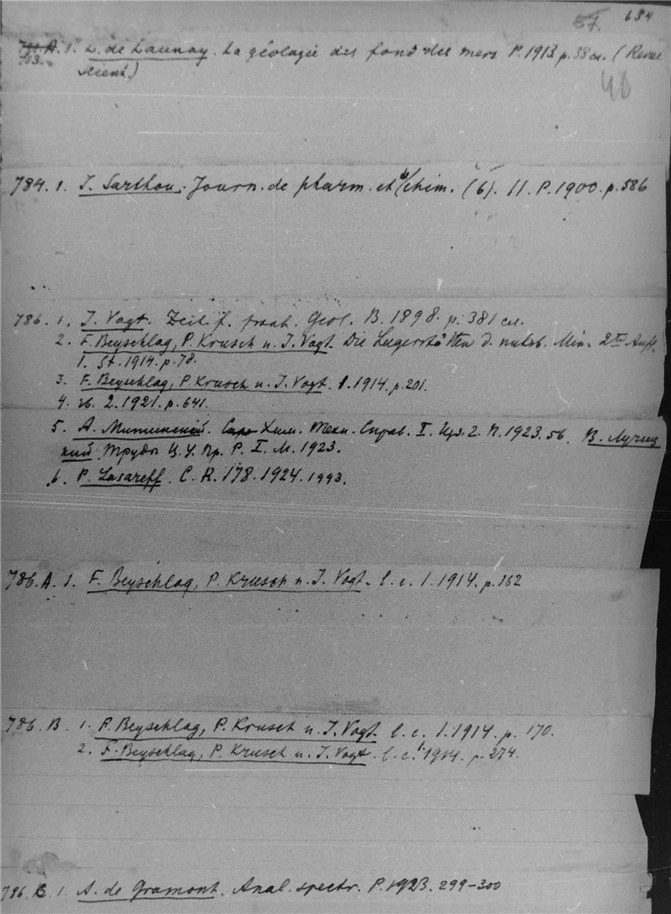 57. 684
783. A. 1. L. de Launay. La géologie des fond des mers P. 1913 p. 38 сл. (Revue
scient.)
40
784. 1. J. Sarthou. Journ. de pharm. et d/chim. (6). 11. P. 1900. p. 586
786. 1. J. Vogt. Zeit. f. prakt. Geol. B. 1898. p. 381 сл.
2. F. Beyschlag, P. Krusch u. J. Vogt. Die Lagerstätten d. nutzb. Min. 2te Aufl.
1. St. 1914. p. 78.
3. F. Beyschlag, P. Krusch u. J. Vogt. 1. 1914. p. 201.
4. ib. 2. 1921. p. 641.
5. А. Хим. Техн. Справ. I. Изд. 2. П. 1923. 56. В. Лучиц
кий Труды Ц. У. Пр. Р. I. М. 1923.
6. P. Lasareff. C. R. 178. 1924. 1993.
786. A. 1. F. Beyschlag, P. Krusch u. J. Vogt. l. c. 1. 1914. p. 162
786. B. 1. F. Beyschlag, P. Krusch u. J. Vogt. l. c. 1. 1914. p. 170.
2. F. Beyschlag, P. Krusch u. J. Vogt. l. c. 1. 1914. p. 274.
786. B. 1. A. de Gramont. Anal. spectr. P. 1923. 299-300